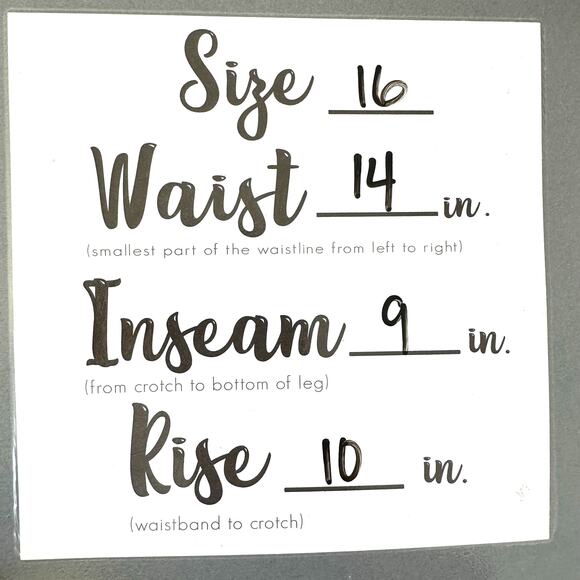 Size 16
Waist 14 in.
(smallest part of the waistline from left to right)
Inseam 9 in.
(from crotch to bottom of leg)
Rise 10 in.
(waistband to crotch)